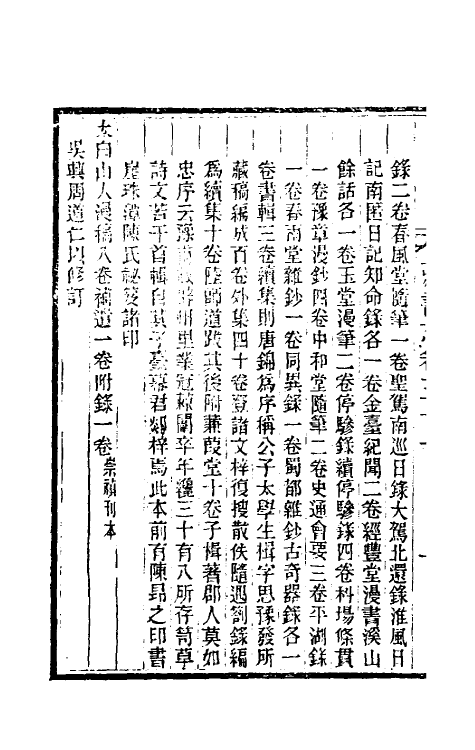 錄二卷春風堂隨筆一卷聖駕南巡日錄大駕北還錄淮風日
記南遷日記知命錄各一卷金臺紀聞二卷經豐堂漫書溪山
餘話各一卷玉堂漫筆二卷停驂錄續停驂錄四卷科場條貫
一卷豫章漫鈔四卷中和堂隨筆二卷史通會要三卷平湖錄
一卷春雨堂雜鈔一卷同異錄一卷蜀都雜鈔古奇器錄各一
卷書輯三卷續集則唐錦爲序稱公子太學生楫字思豫發所
藏稿編成百卷外集四十卷暨諸文梓復搜散佚隨遇劄錄編
爲續集十卷陸師道跋其後附蒹葭堂十卷子楫著郡人莫如
忠序云豫 里業冠 辛年纔三十有八所存笥草
詩文若干首輯自其子臺幕君郯梓焉此本前有陳昂之印書
崖珠潭陳氏祕笈諸印
太白山人漫稿八卷補遺一卷附錄一卷崇禎刊本
吳興周道仁以修訂